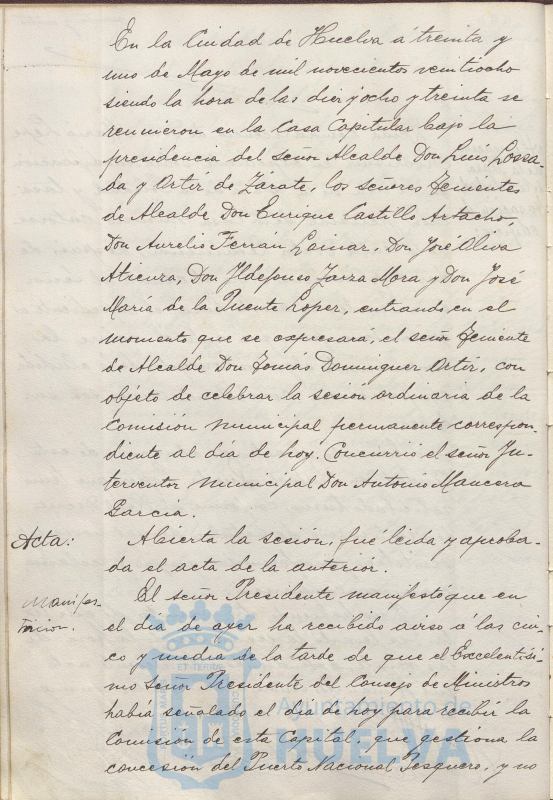 En la Ciudad de Huelva á treinta y
uno de Mayo de mil novecientos veintiocho
siendo la hora de las diez y ocho y treinta se
reunieron en la Casa Capitular bajo la
presidencia del señor Alcalde Don Luis Lossa-
da y Ortiz de Zárate, los señores Tenientes
de Alcalde Don Enrique Castillo Artacho,
Don Aurelio Ferrán Loinaz, Don José Oliva
Atienza, Don Ildefonso Zarza Mora y Don José
María de la Puente Lopez, entrando, en el
momento que se expresará, el señor Teniente
de Alcalde Don Tomás Dominguez Ortiz, con
objeto de celebrar la sesión ordinaria de la
Comisión municipal permanente correspon-
diente al día de hoy. Concurrió el señor In-
terventor municipal Don Antonio Mancera
García.
Acta: Abierta la sesión, fué leida y aproba-
da el acta de la anterior.
Manifes- El señor Presidente manifestó que en
tación. el día de ayer ha recibido aviso á las cin-
co y media de la tarde de que el Excelentísi-
mo señor Presidente del Consejo de Ministros
había señalado el día de hoy para recibir la
Comisión de esta Capital, que gestiona la
concesión del Puerto Nacional Pesquero, y no
Ayuntamiento de
HUELVA